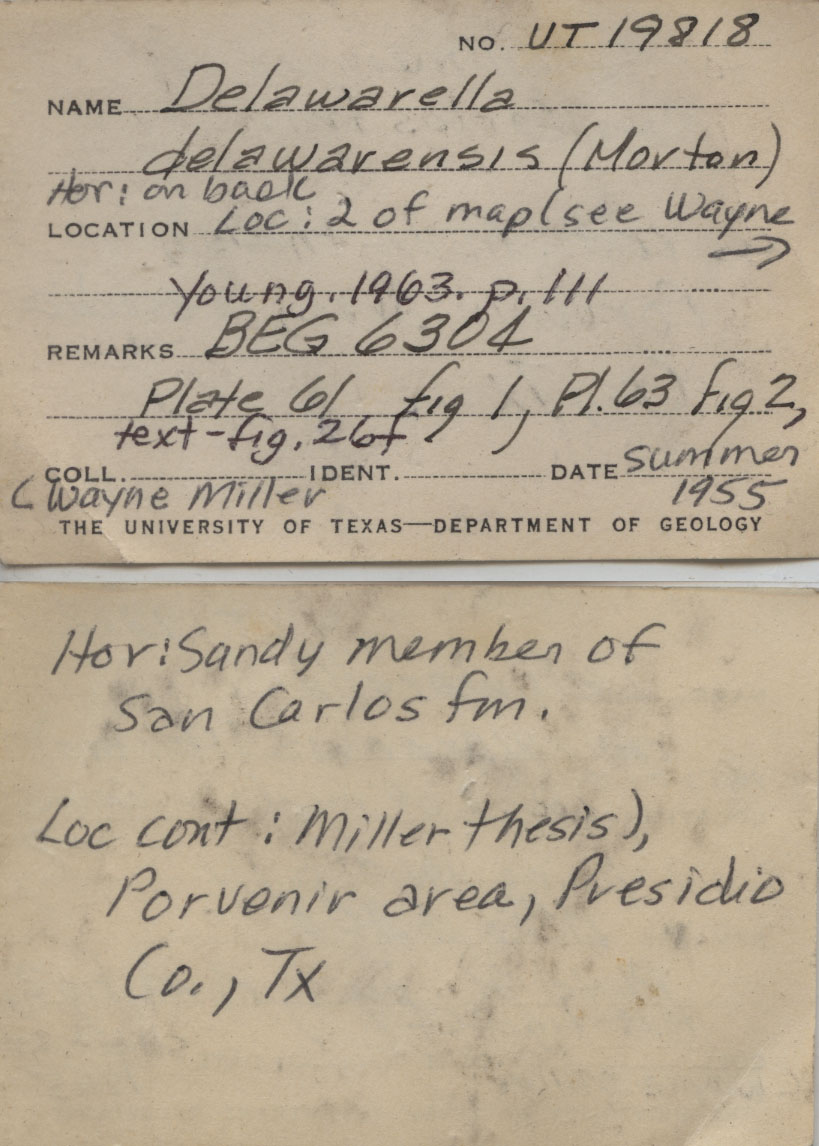 NO. UT 19818
NAME Delawarella
delawarensis (Morton)
Hor: on back
LOCATION Loc: 2 of map (see Wayne →
Young. 1963. p. 111
REMARKS BEG 6304
Plate 61 fig 1, Pl. 63 fig 2,
text-fig. 26f
COLL. IDENT. DATE summer
C Wayne Miller 1955
THE UNIVERSITY OF TEXAS—DEPARTMENT OF GEOLOGY
Hor: Sandy member of
San Carlos fm.
Loc cont: Miller thesis),
Porvenir area, Presidio
Co., Tx